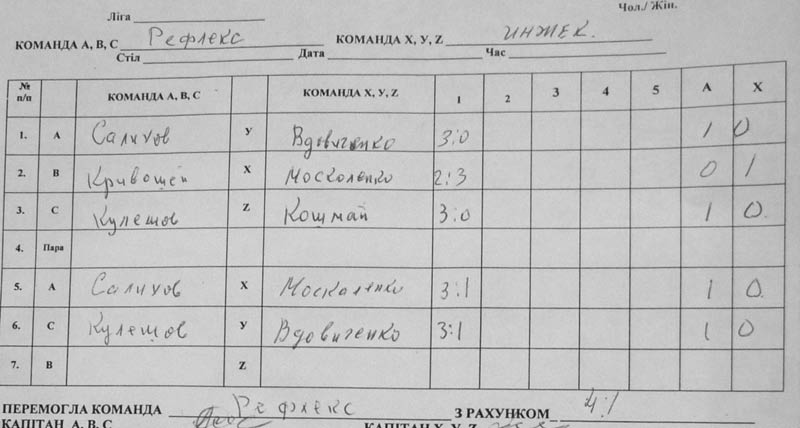 Чол./ Жін.
Ліга
КОМАНДА А, В, С Рефлекс КОМАНДА X, У, Z ИНЖЕК.
Стіл Дата Час
№ п/п КОМАНДА А, В, С КОМАНДА X, У, Z 1 2 3 4 5 А X
1. А Салихов У Вдовиченко 3:0 1 0
2. В Кривошей X Москаленко 2:3 0 1
3. С Кулешов Z Кошмай 3:0 1 0
4. Пара
5. А Салихов X Москаленко 3:1 1 0
6. С Кулешов У Вдовиченко 3:1 1 0
7. В Z
ПЕРЕМОГЛА КОМАНДА Рефлекс З РАХУНКОМ 4:1
КАПІТАН А, В, С КАПІТАН X, У, Z